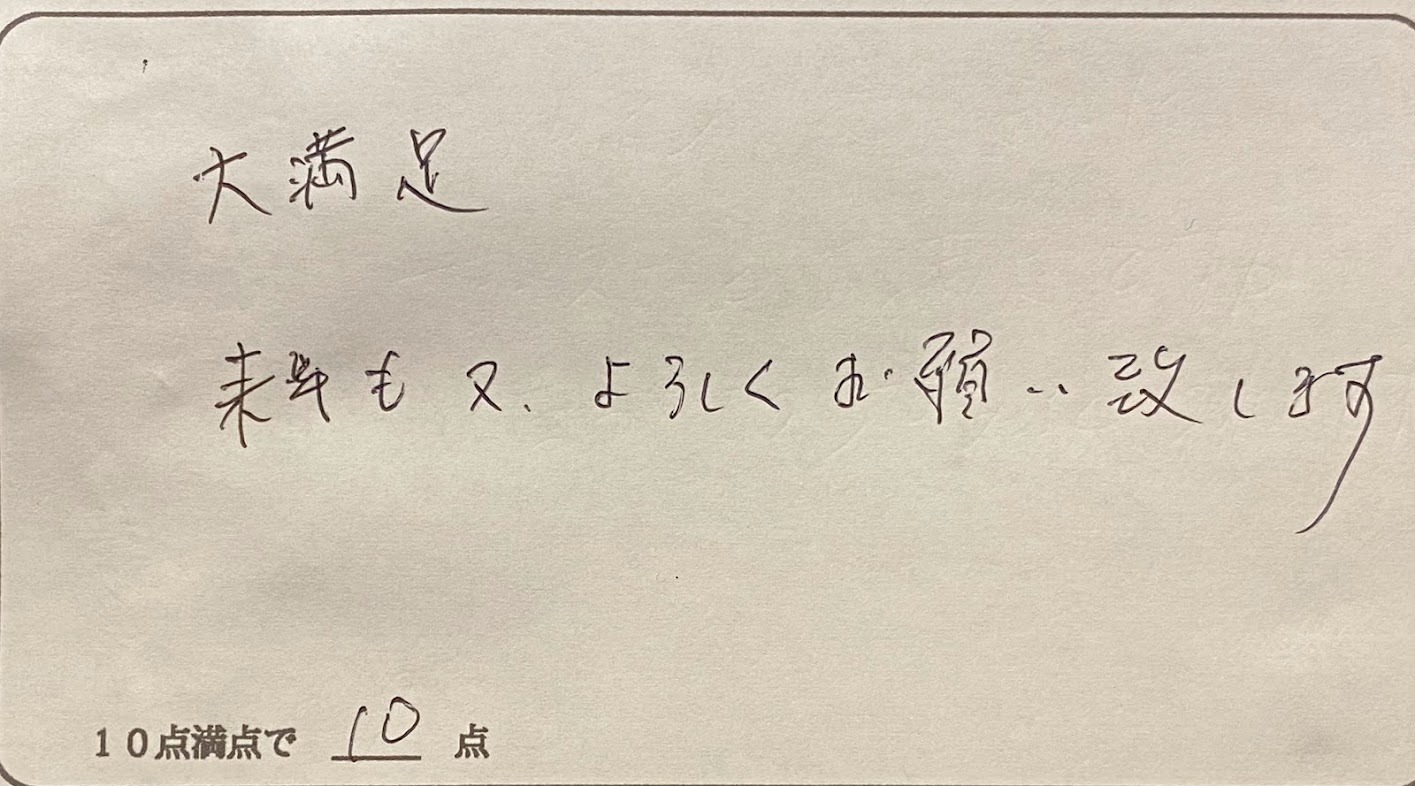 大満足
来年も又、よろしくお願い致します
10点満点で 10 点